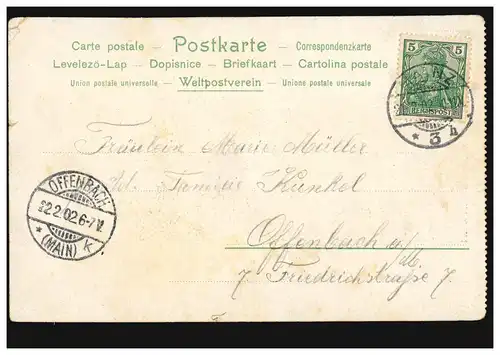 Carte postale – Postkarte – Correspondenzkarte
Levelező-Lap – Dopisnice – Briefkaart – Cartolina postale
Union postale universelle – Weltpostverein – Unione postale universale
5 5
REICHSPOST
NZ
* 3 h
Fräulein Marie Müller
Ad. Familie Kunkel
Offenbach a/M
7 Friedrichstraße 7.
OFFENBACH
22.2.02.6-7V.
* (MAIN) K *